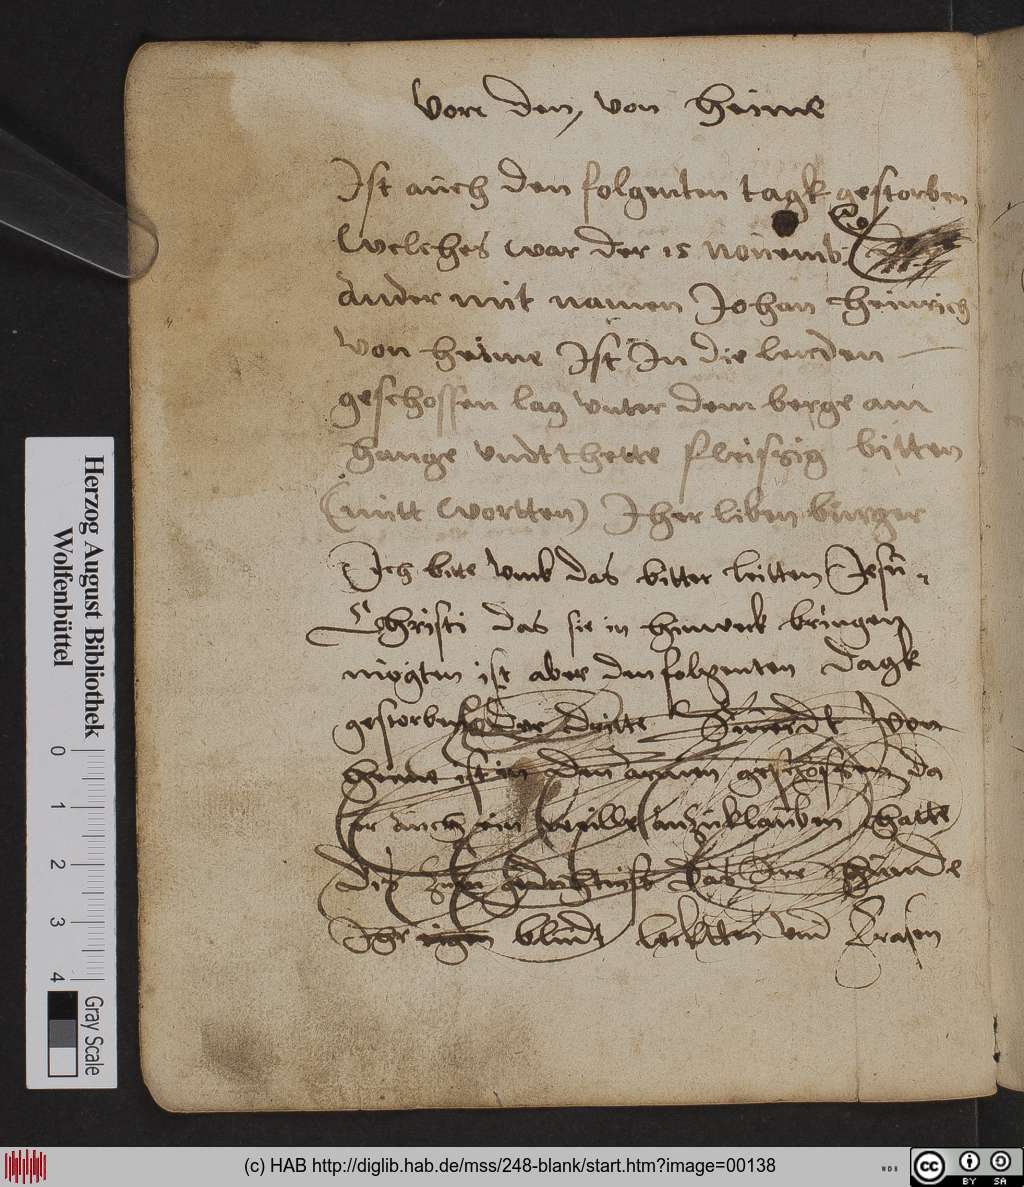 vorr den, von heime
Ist auch den folgenten tagk gestorben
welches war der 15 nouemb
Ander mit namen Johan heinrich
von heime Ist In die lenden
geschossen lag vnter dem berge am
hange vndt thette fleissig bitten
(mitt wortten) Iher liben burger
Ich bite vmb das bitter leitten Jesu
Christi das sie in hinweck bringen
mögten ist aber den folgenten dagk
gestorben der dritte von
heime ist in den armen geschossen da
er auch ein anzuklauben hatte
das Ire hunde
Ihr bludt leckten vnd frasen
Herzog August Bibliothek
Wolfenbüttel
0 1 2 3 4
Gray Scale
(c) HAB http://diglib.hab.de/mss/248-blank/start.htm?image=00138
WDB
cc BY SA